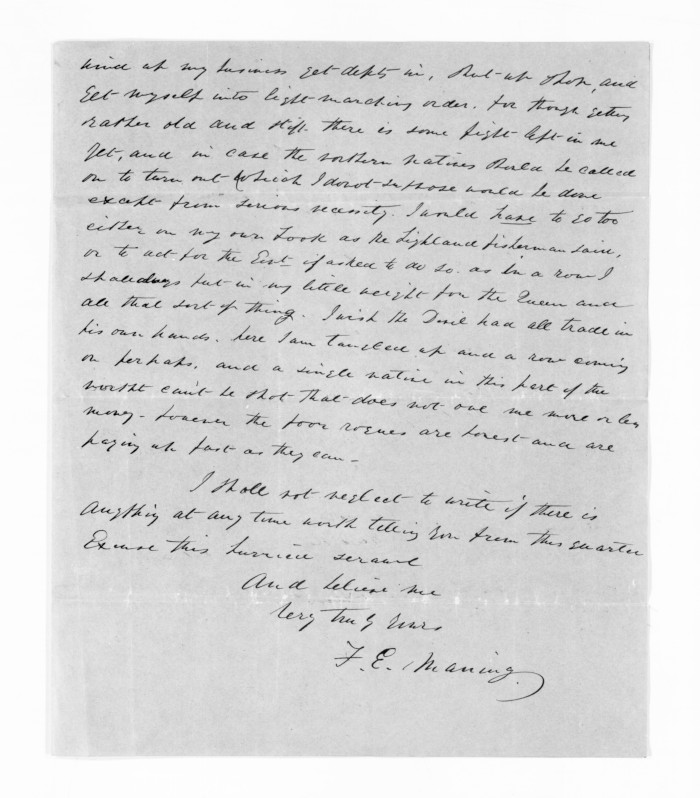 wind up my business get debts in, shut up shop, and
get myself into light marching order. for though getting
rather old and stiff there is some fight left in me
yet, and in case the northern natives should be called
on to turn out (which I do not suppose would be done
except from serious necessity. I would have to go too
either on my own hook as the Highland fisherman said,
or to act for the Govt if asked to do so. as in a row I
should put in my little weight for the Queen and
all that sort of thing. I wish the Devil had all trade in
his own hands. here I am tangled up and a row coming
on perhaps, and a single native in this part of the
north can't be shot that does not owe me more or less
money - however the poor rogues are honest and are
paying up fast as they can -
I shall not neglect to write if there is
anything at any time worth telling you from this quarter
Excuse this hurried scrawl
And believe me
Very truly yours
F. E. Maning